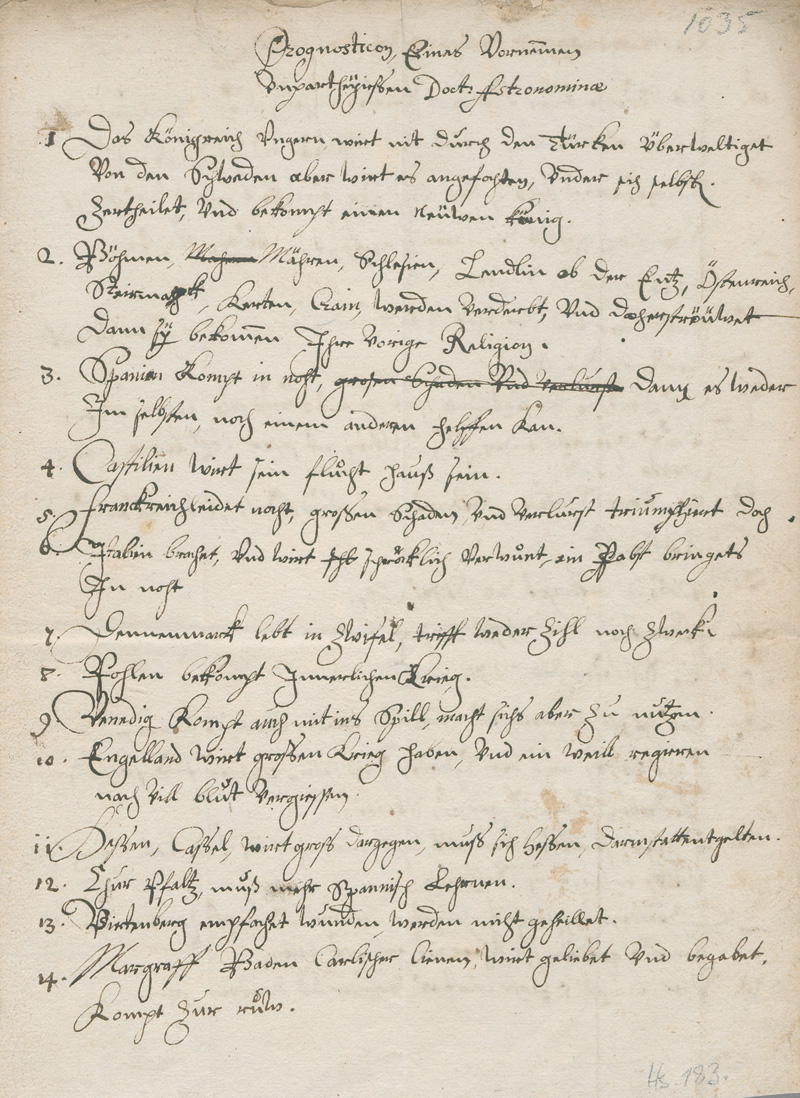 1035
Prognosticon, Eines Vornemen
Vnpartheÿischen Doct: Astronominæ
1 Das Königreich Vngern wirt nit durch den Türken Überweltiget
Von den Schweden aber wirt es angefochten, Vnder sich selbst.
Zertheilet, Vnd bekompt einen neüwen könig.
2. Böhmen, Mähren, Schlesien, Lendlin ob der Entz, Östenreich,
Steirmarck, Kerten, Crain, werden Verderbt, Vnd daherströüwet
Dann sÿ bekomen Ihre Vorige Religion.
3. Spanien Kompt in noht, grosen Schaden Vnd Verlurst Dann es weder
Im selbsten, noch einem anderen helffen Kan.
4. Castilien wirt sein flucht hauß sein.
5. Franckreich leidet noht, grossen Schaden, Vnd Verlurst triumphiert doch
6. Italien brechet, Vnd wirt schröcklich Verwunt, ein Pabst bringets
In noht
7. Dennenmarck lebt in Zwifel, trifft weder Zihl noch Zweck.
8. Pohlen bekompt Innerlichen Krieg.
9 Venedig Kompt auch mit ins Spill, macht sichs aber Zu nutzen.
10. Engelland wirt grossen Krieg haben, Vnd ein weill regieren
nach Vill blůt Vergiessen.
11. Hessen, Cassel, wirt gross dargegen, muss sich Hessen, Darmstatt entgelten.
12. Chur Pfaltz, muß mehr Spannisch Lehrnen.
13. Wirtenberg empfachet wunden, werden nicht geheillet.
14. Margraff Baden Carlischer Lienien, wirt geliebet Vnd begabet,
Kompt Zur růw.
Hs. 183.